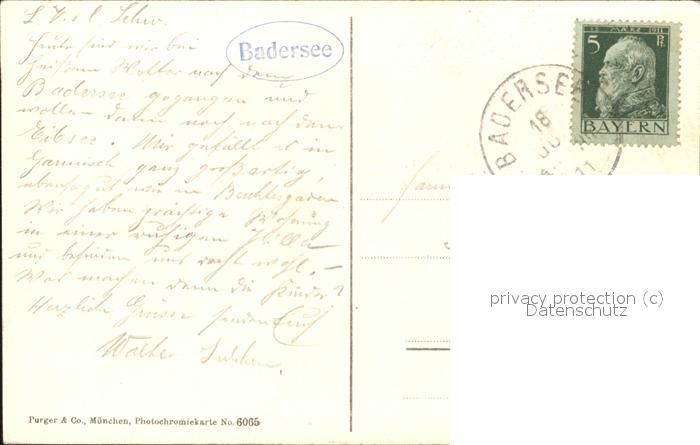 L. V. & C. Schw.
Heute sind wir bei
heissem Wetter nach dem
Badersee gegangen und
wollen dann noch nach dem
Eibsee. Mir gefällt es in
Garmisch ganz großartig,
ebensogut wie in Berchtesgaden.
Wir haben prächtige Wohnung
in einer ruhigen Villa
und befinden uns recht wohl. –
Was machen denn die Kinder?
Herzliche Grüsse senden Euch
Walter
Badersee
BADERSEE
18
11
12 MÄRZ 1911
5 Pf.
BAYERN
privacy protection (c)
Datenschutz
Purger & Co., München, Photochromiekarte No. 6065